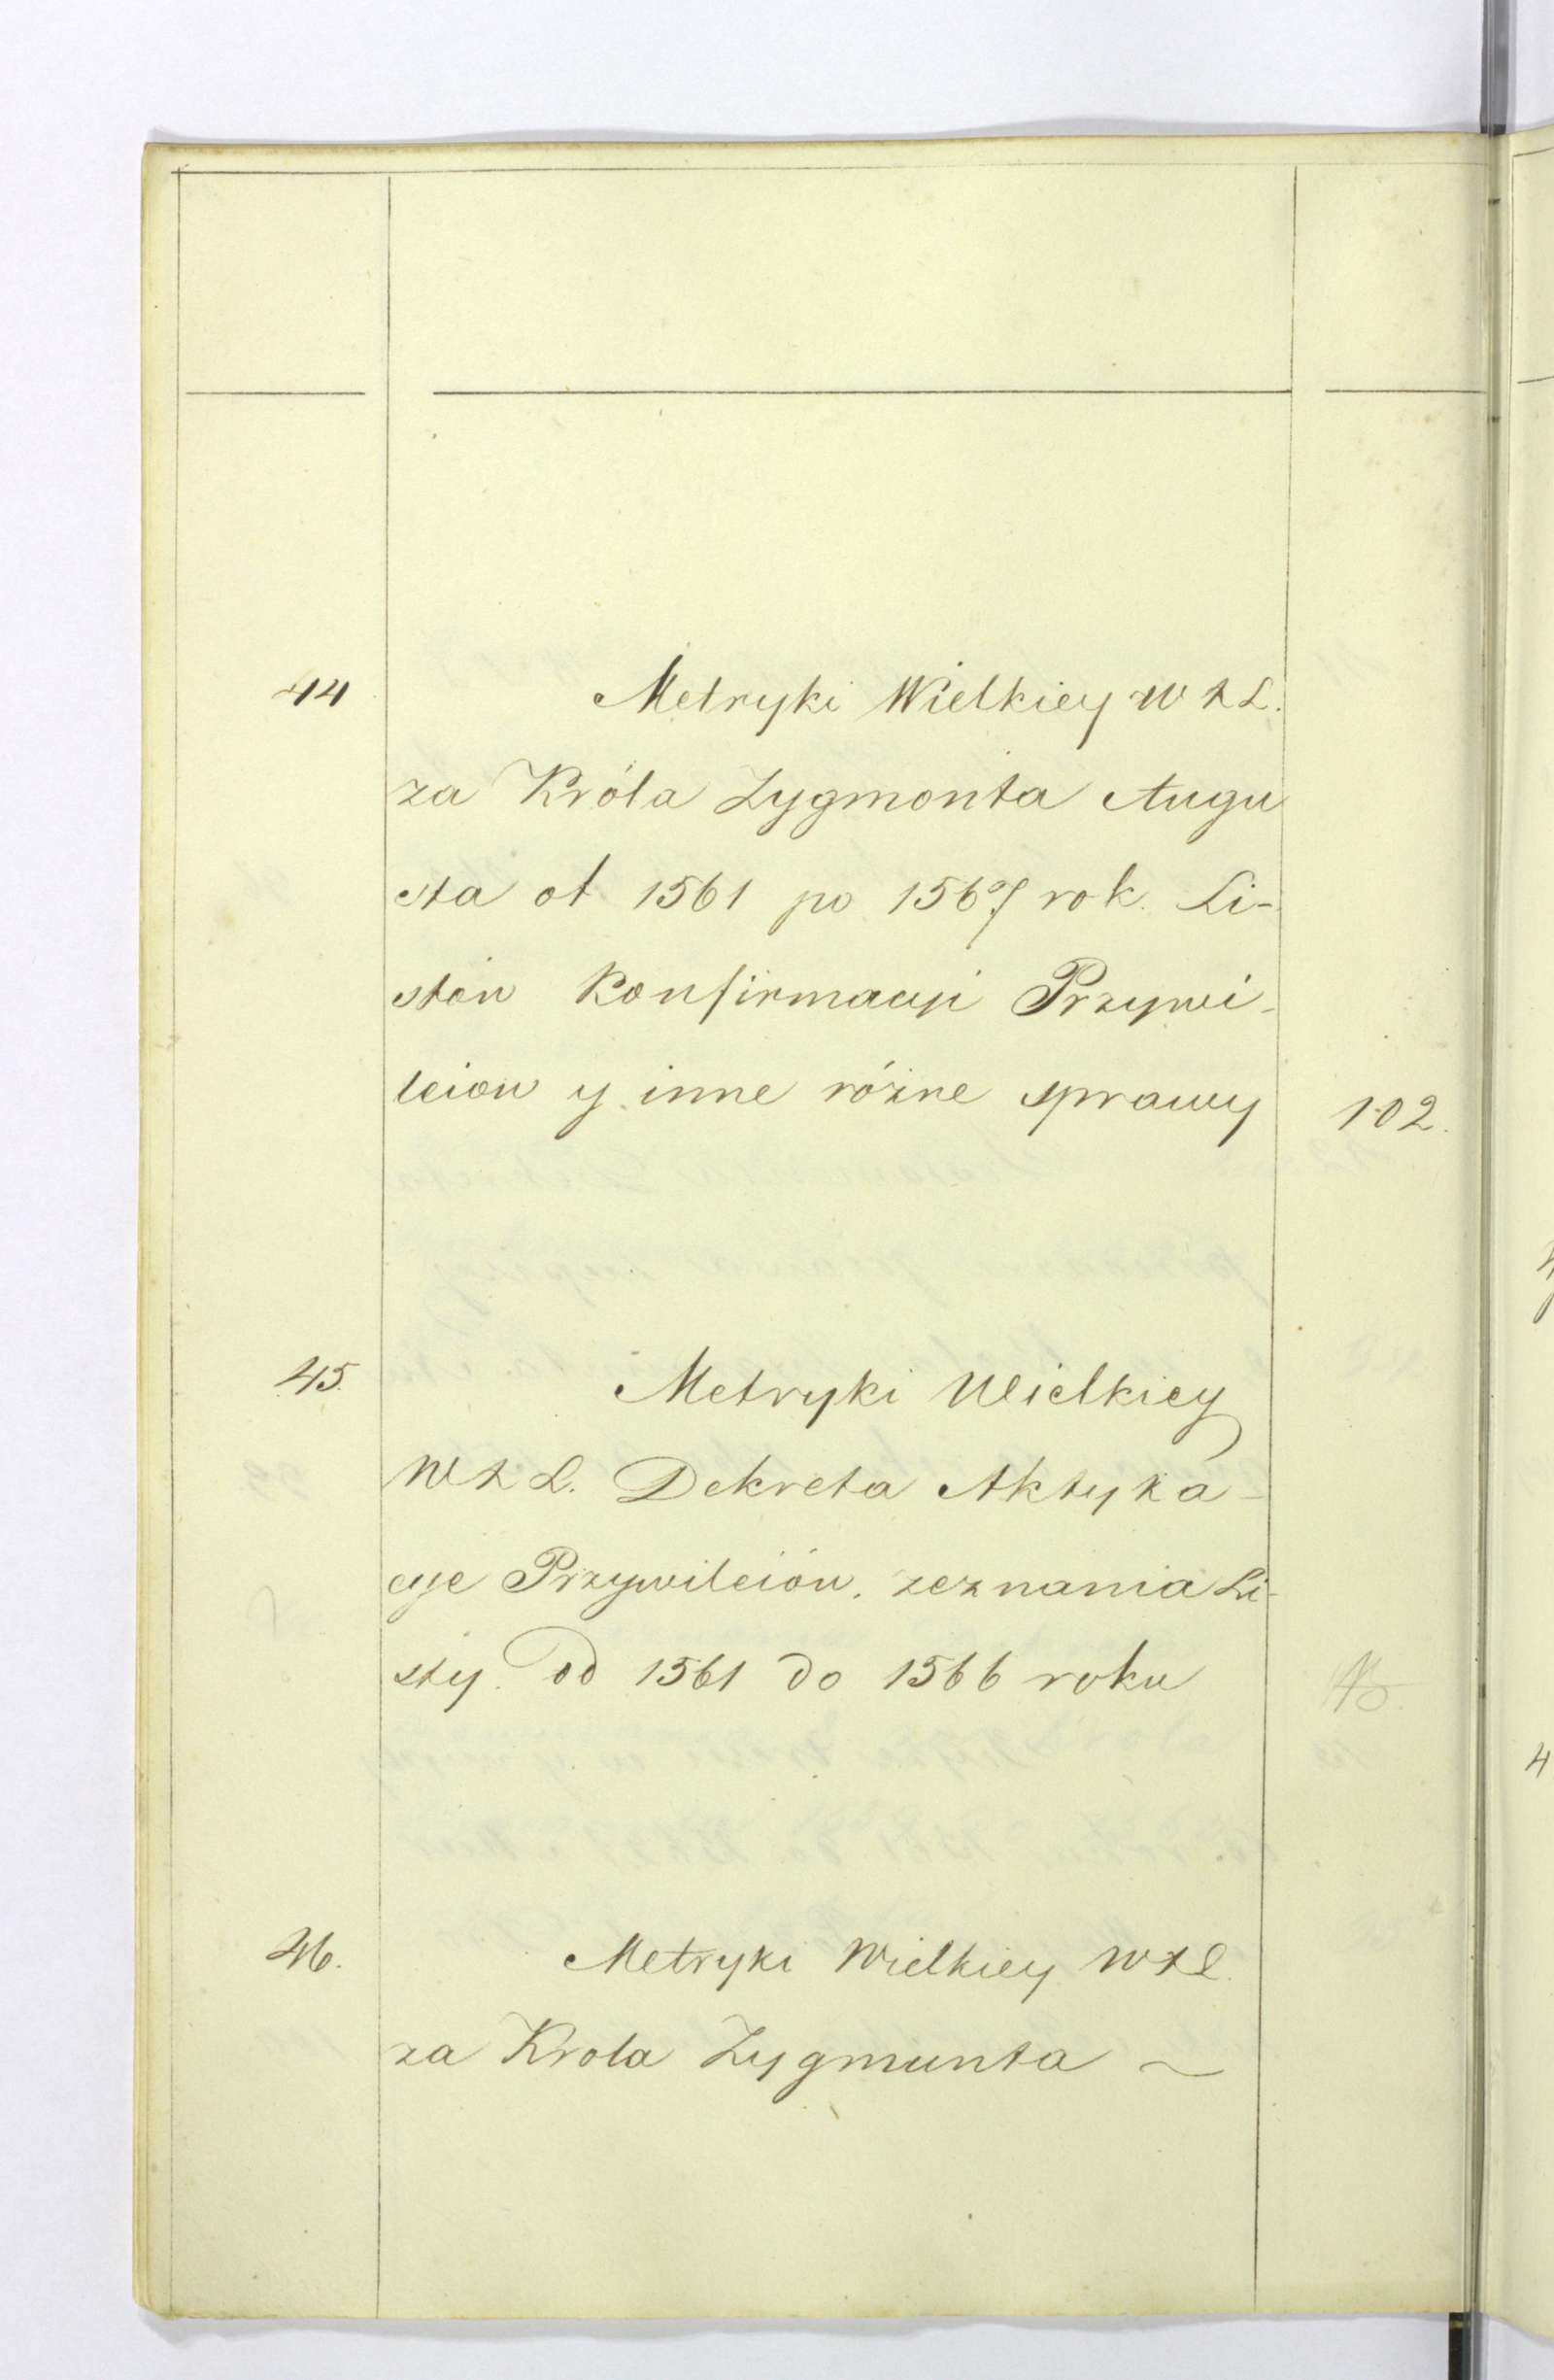 44 Metryki Wielkiey W X L.
za Króla Zygmonta Augu
sta ot 1561 po 1567 rok. Li-
stów Konfirmacyi Przywi-
leiow y inne różne sprawy 102.
45. Metryki Wielkiey
W X L. Dekreta Aktyka-
cye Przywileiów. zeznania Li-
sty. od 1561 do 1566 roku
46. Metryki Wielkiey W X L.
za Krola Zygmunta ~